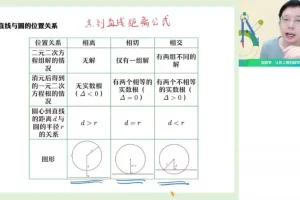 直线与圆的位置关系
点到直线距离公式
位置关系 相离 相切 相交
二元二次方程组解的情况 无解 仅有一组解 有两组不同的解
消元后得到的一元二次方程根的情况 无实数根（Δ<0） 有两个相等的实数根（Δ=0） 有两个不相等的实数根（Δ>0）
圆心到直线的距离d与圆的半径r的关系 d>r d=r d<r
图形